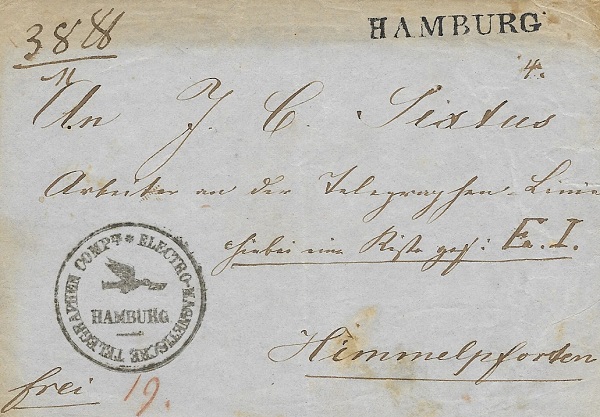 HAMBURG
4.
An J. C. Sixtus
Arbeiter an der Telegraphen-Linie
hiebei eine Kiste gez: E. I.
ELECTRO-MAGNETISCHE TELEGRAPHEN COMPT
HAMBURG
Himmelpforten
frei 19.